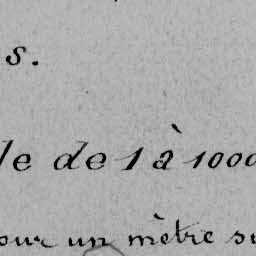 s.
le de 1 à 1000
our un mètre su